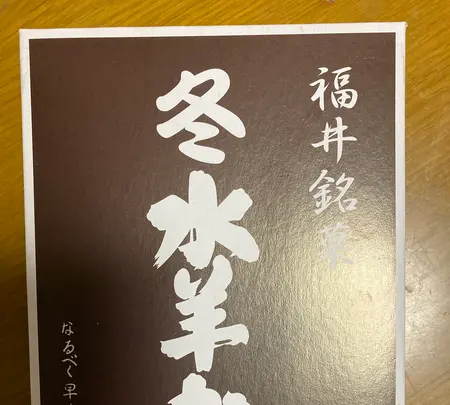 福井銘菓
冬水羊
なるべく早